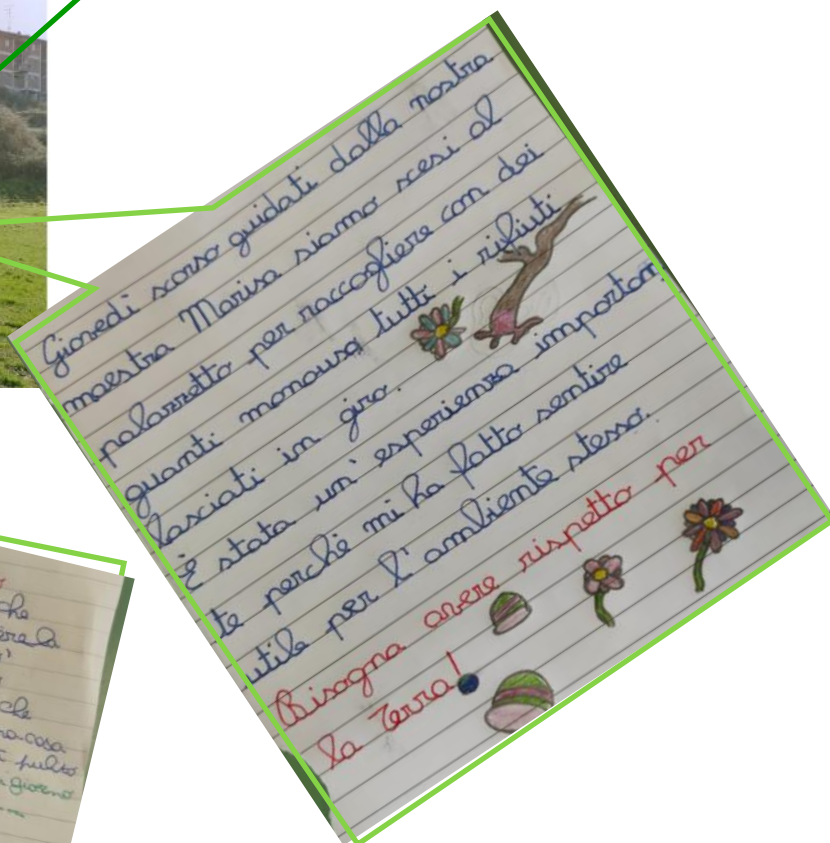 Giovedì scorso guidati dalla nostra
maestra Marisa siamo scesi al
palazzetto per raccogliere con dei
guanti monouso tutti i rifiuti
lasciati in giro.
È stata un'esperienza importan
te perchè mi ha fatto sentire
utile per l'ambiente stesso.
Bisogna avere rispetto per
la Terra!
che
che
cosa
pulito
giorno